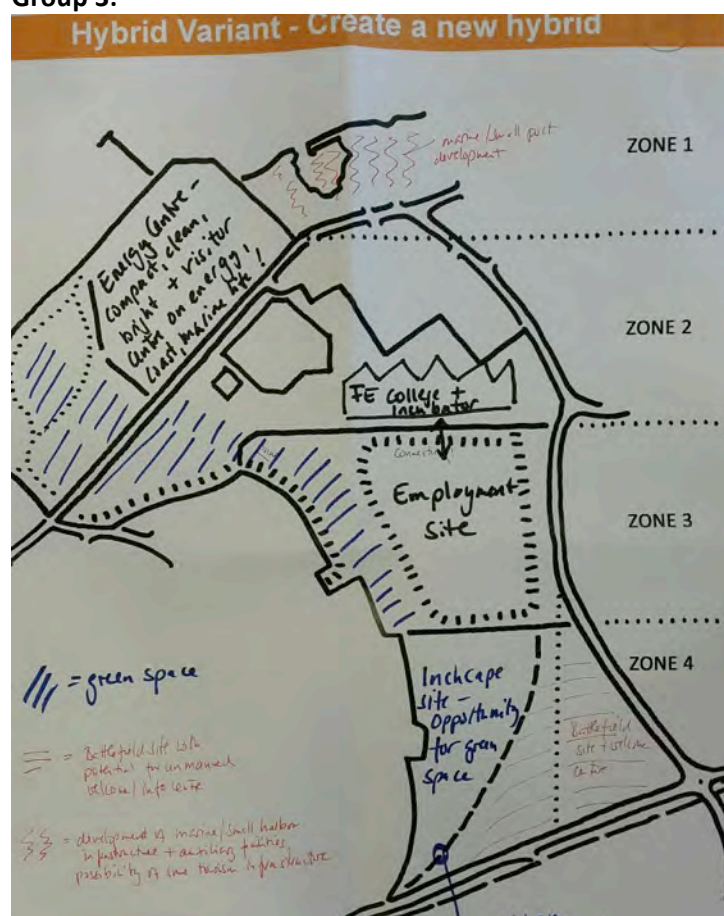 Group 3:
Hybrid Variant - Create a new hybrid
marine/small port
development
ZONE 1
Energy Centre -
compact, clean,
bright + visitor
centre on energy,
coast, marine life!
ZONE 2
FE college +
incubator
Connection
Employment
site
ZONE 3
ZONE 4
/// = green space
Inchcape
site -
Opportunity
for green
space
Battlefield
site + welcome
centre
= Battlefield site with
potential for unmanned
welcome/info centre
= development of marine/small harbor
infrastructure + auxiliary facilities,
possibility of some tourism infrastructure